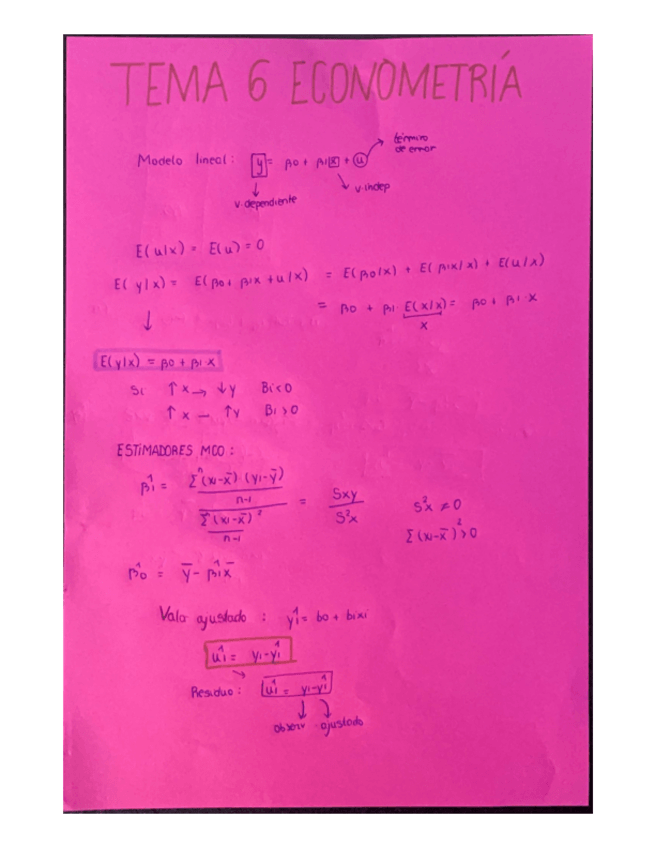 TEMA 6 ECONOMETRÍA
término
de error
Modelo lineal: y = β0 + β1 x + u
v. indep
v. dependiente
E(u/x) = E(u) = 0
E(y/x) = E(β0 + β1x + u/x) = E(β0/x) + E(β1x/x) + E(u/x)
= β0 + β1 · E(x/x) = β0 + β1 · x
x
↓
E(y/x) = β0 + β1 · x
Si ↑x → ↓y Bi<0
↑x — ↑y Bi>0
ESTIMADORES MCO:
β̂1 = (Σⁿ(xi-x̄)(yi-ȳ) / n-1) / (Σ(xi-x̄)² / n-1) = Sxy / S²x
S²x ≠ 0
Σ(xi-x̄)²>0
β̂0 = ȳ - β̂1x̄
Valo ajustado : ŷi = b0 + bixi
ûi = yi-ŷi
Residuo: ûi = yi-ŷi
observ ajustado